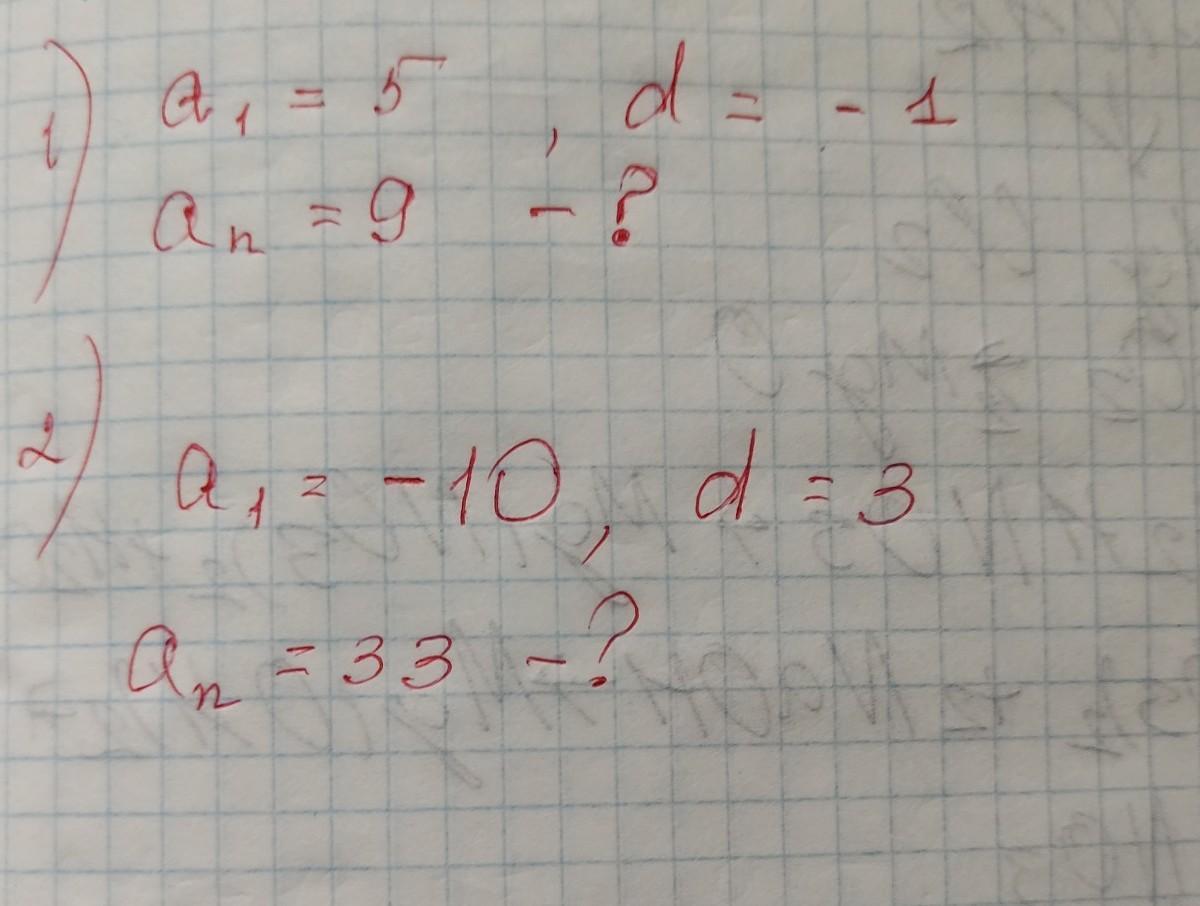 1) a₁ = 5 , d = - 1
aₙ = 9 - ?
2) a₁ = -10, d = 3
aₙ = 33 - ?